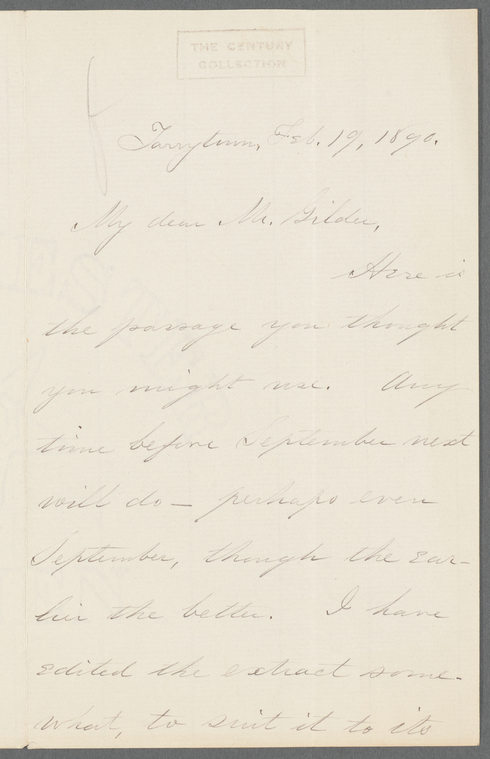 THE CENTURY
COLLECTION
Tarrytown, Feb. 19, 1890.
My dear Mr. Gilder,
Here is
the passage you thought
you might use. Any
time before September next
will do — perhaps even
September, though the ear-
lier the better. I have
edited the extract some-
what, to suit it to its